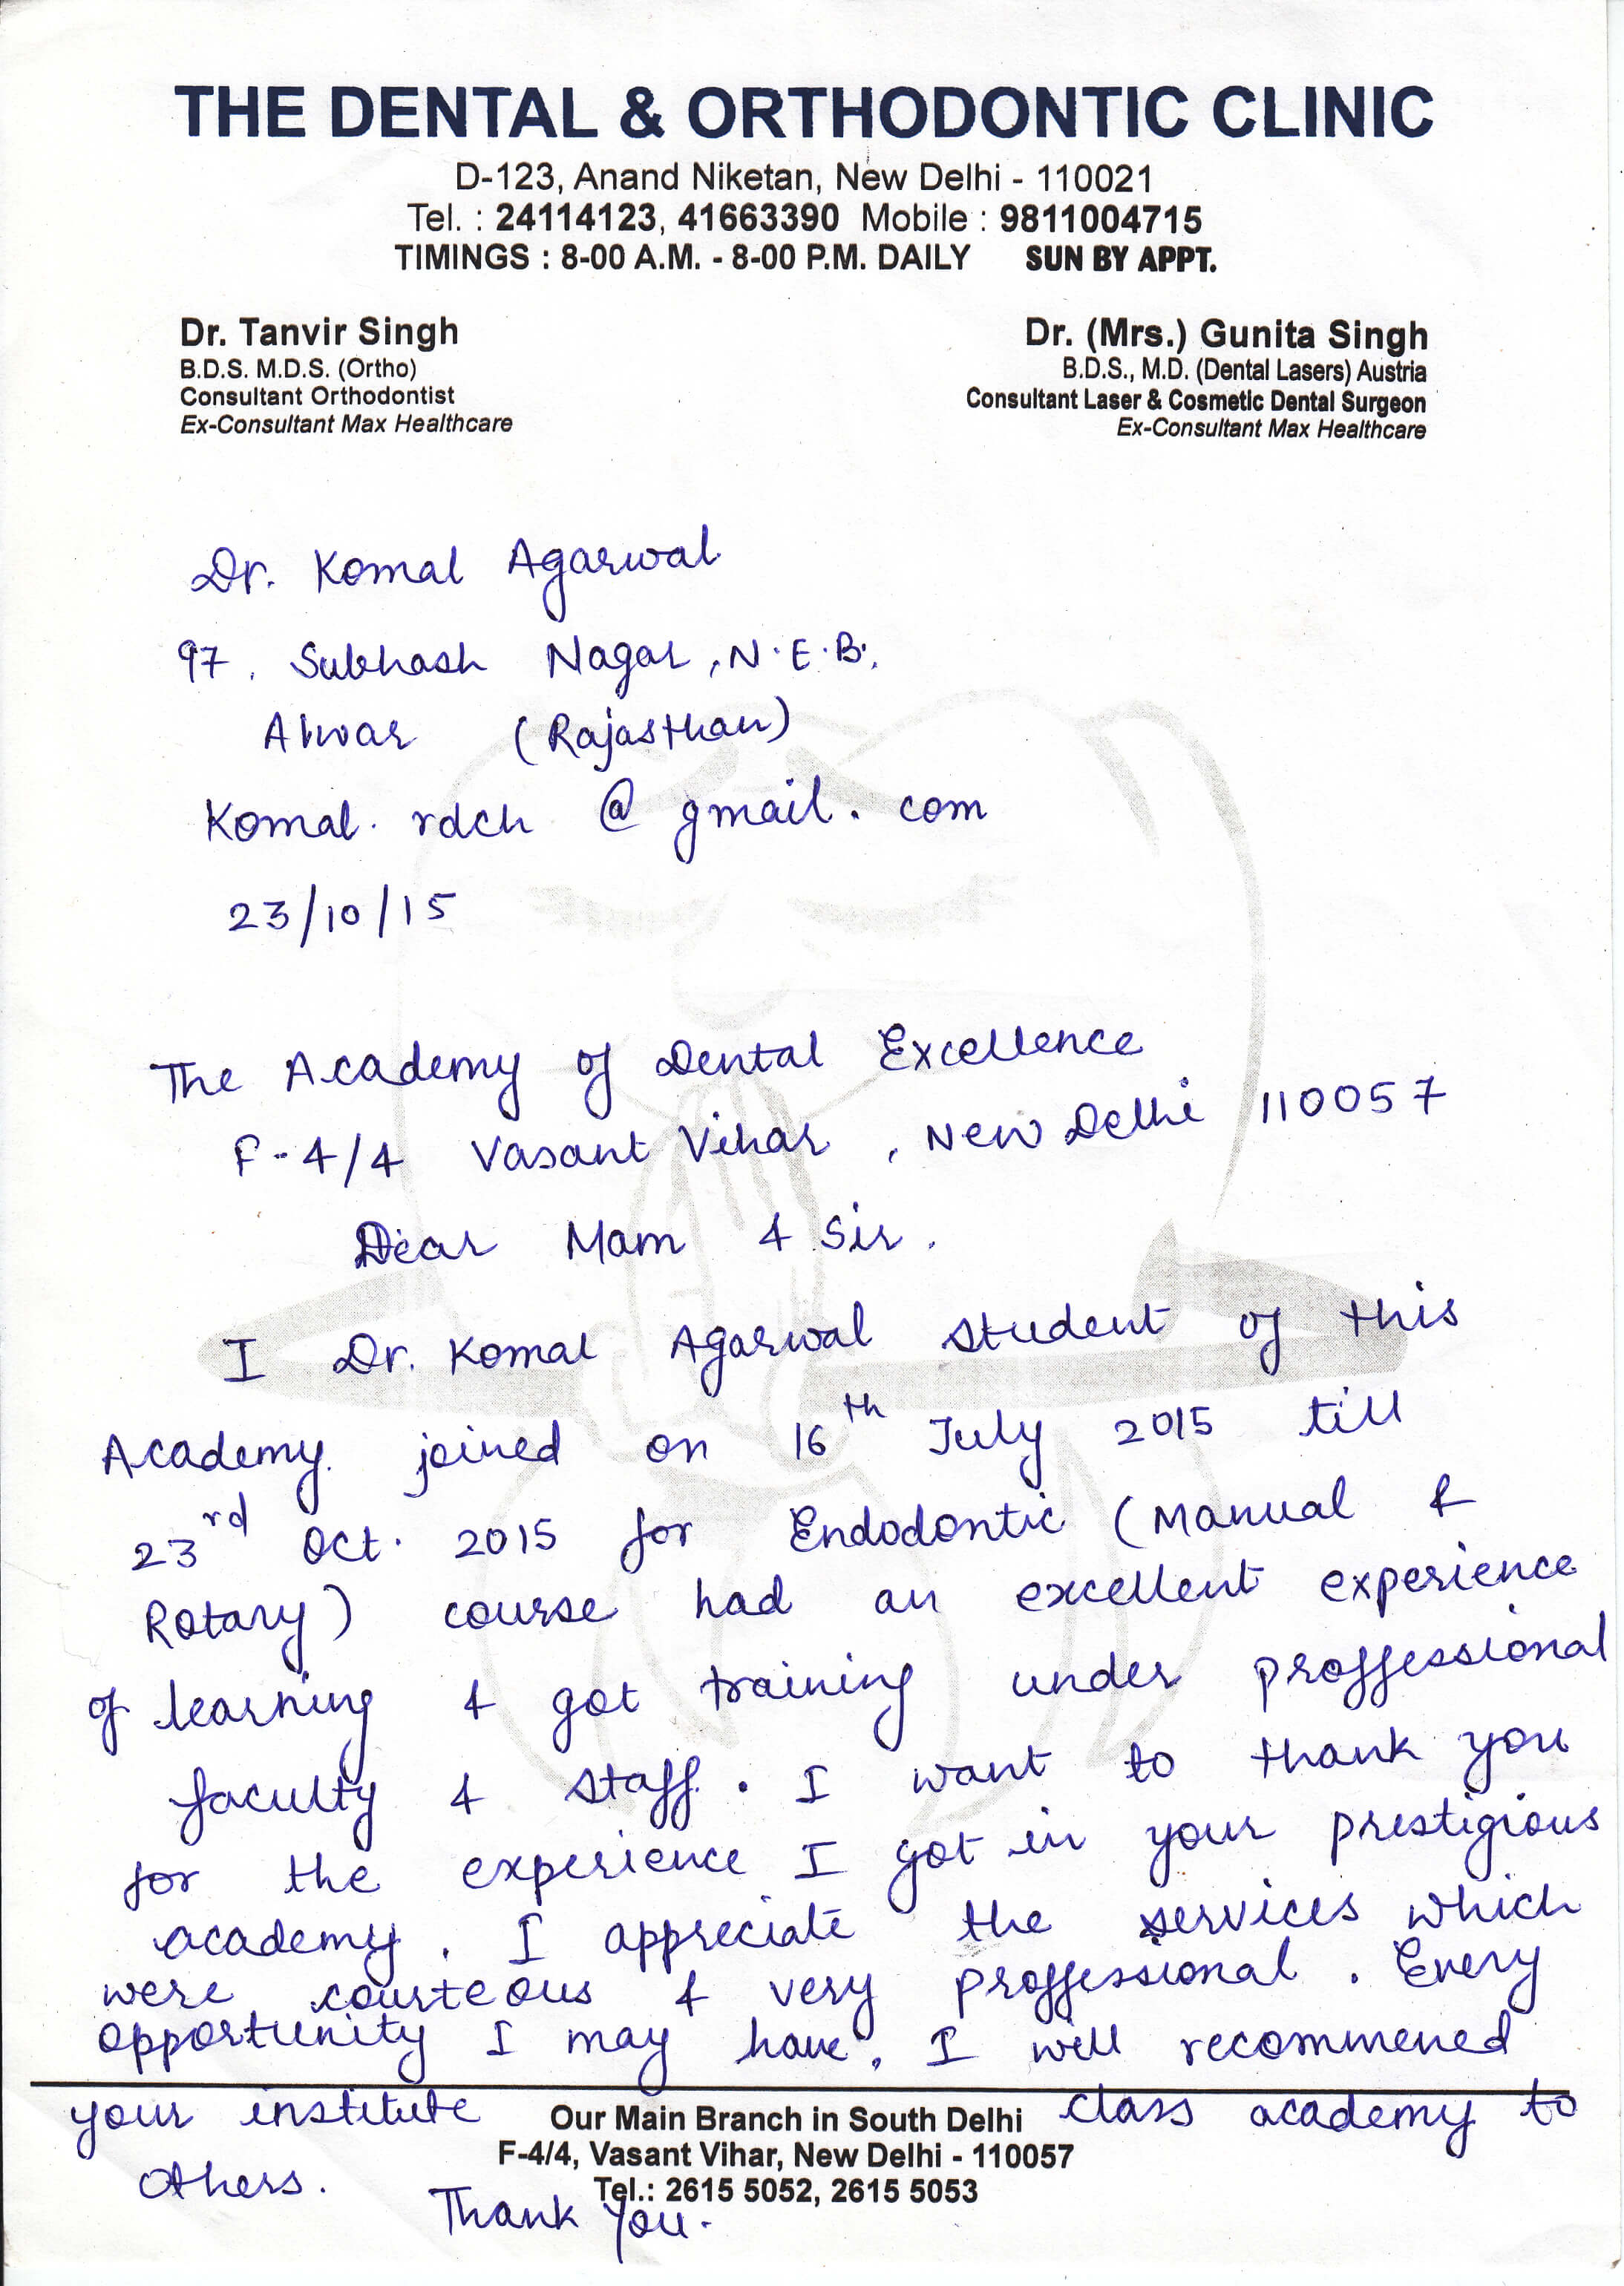 THE DENTAL & ORTHODONTIC CLINIC
D-123, Anand Niketan, New Delhi - 110021
Tel. : 24114123, 41663390 Mobile : 9811004715
TIMINGS : 8-00 A.M. - 8-00 P.M. DAILY SUN BY APPT.
Dr. Tanvir Singh
B.D.S. M.D.S. (Ortho)
Consultant Orthodontist
Ex-Consultant Max Healthcare
Dr. (Mrs.) Gunita Singh
B.D.S., M.D. (Dental Lasers) Austria
Consultant Laser & Cosmetic Dental Surgeon
Ex-Consultant Max Healthcare
Dr. Komal Agarwal
97, Subhash Nagar, N.E.B.,
Alwar (Rajasthan)
Komal.rdch@gmail.com
23/10/15
The Academy of Dental Excellence
F-4/4 Vasant Vihar, New Delhi 110057
Dear Mam & Sir.
I Dr. Komal Agarwal student of this
Academy. joined on 16th July 2015 till
23rd Oct. 2015 for Endodontic (Manual &
Rotary) course had an excellent experience
of learning & got training under proffessional
faculty & staff. I want to thank you
for the experience I got in your prestigious
academy. I appreciate the services which
were courteous & very proffessional. Every
opportunity I may have, I will recommened
your institute class academy to
Others.
Thank You.
Our Main Branch in South Delhi
F-4/4, Vasant Vihar, New Delhi - 110057
Tel.: 2615 5052, 2615 5053